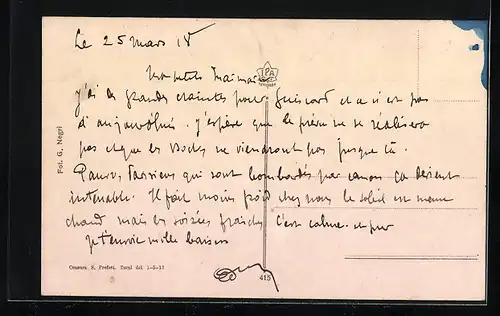 Le 25 mars 18
Ma petite Maman
j'ai de grandes craintes pour Guiscard et ce n'est pas
d'aujourd'hui. J'espère que le prévu ne se réalisera
pas et que les Boches ne viendront pas jusque là.
Pauvres Parisiens qui sont bombardés par canon ça devient
intenable. Il fait moins froid chez nous le soleil est même
chaud mais les soirées fraiches c'est calme. et pur
je t'envoie mille baisers
IPA
Fot. G. Negri
Censura S. Prefett. Torol dal 1-5-17
415